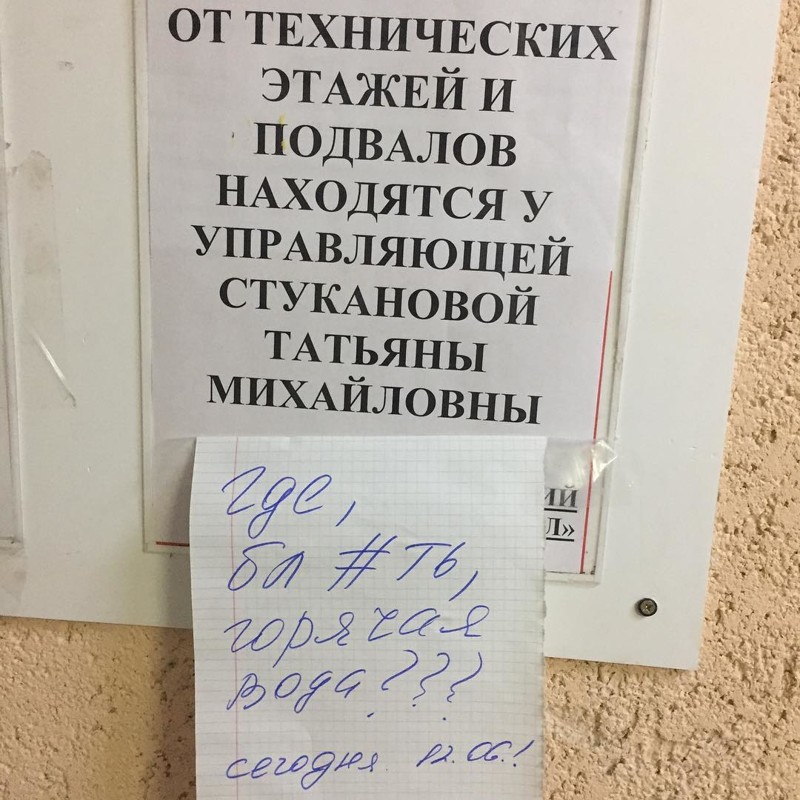 ОТ ТЕХНИЧЕСКИХ
ЭТАЖЕЙ И
ПОДВАЛОВ
НАХОДЯТСЯ У
УПРАВЛЯЮЩЕЙ
СТУКАНОВОЙ
ТАТЬЯНЫ
МИХАЙЛОВНЫ
ИЙ
Л»
где,
бл#ть,
горячая
вода???
сегодня 12.06.!